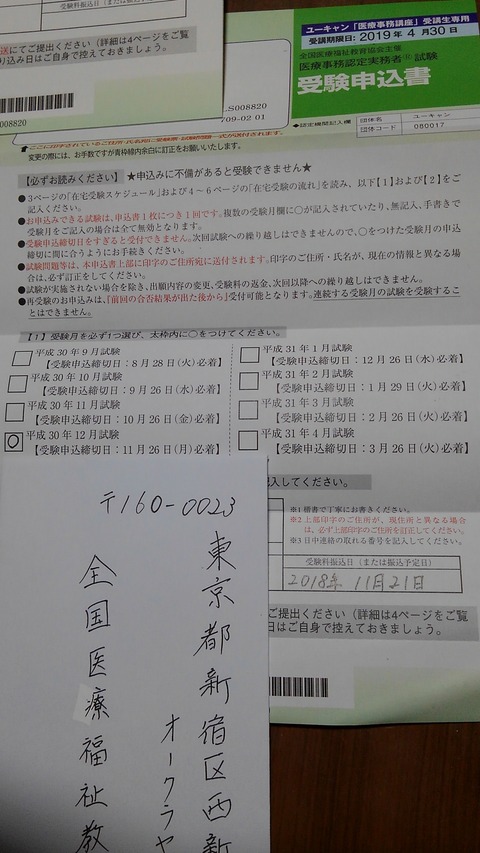 送にてご提出ください(詳細は4ページをご覧
り込み日はご自身で控えておきましょう。
008820
.S008820
709-02 01
ユーキャン「医療事務講座」受講生専用
受講期限日:2019年 4月30日
全国医療福祉教育協会主催
医療事務認定実務者(R)試験
受験申込書
●認定機関記入欄
団体名
ユーキャン
団体コード
080017
変更の際には、お手数ですが青枠線内余白に訂正をお願いいたします。
【必ずお読みください】 ★申込みに不備があると受験できません★
●3ページの「在宅受験スケジュール」および4～6ページの「在宅受験の流れ」を読み、以下【1】および【2】をご
記入ください。
●お申込みできる試験は、申込書1枚につき1回です。複数の受験月欄に○が記入されていたり、無記入、手書き
で受験月をご記入の場合は全て無効となります。
●受験申込締切日をすぎると受付できません。次回試験への繰り越しはできませんので、○をつけた受験月の申込
締切日に間に合うようにお手続きください。
●試験問題等は、本申込書上部に印字のご住所宛に送付されます。印字のご住所・氏名が、現在の情報と異なる場合
は、必ず訂正してください。
●試験が実施されない場合を除き、出願内容の変更、受験料の返金、次回以降への繰り越しはできません。
●再受験のお申込みは、『前回の合否結果が出た後から』受付可能となります。連続する受験月の試験を受験するこ
とはできません。
【1】受験月を必ず1つ選び、太枠内に○をつけてください。
平成30年9月試験
【受験申込締切日:8月28日(火)必着】
平成30年10月試験
【受験申込締切日:9月26日(水)必着】
平成30年11月試験
【受験申込締切日:10月26日(金)必着】
○
平成30年12月試験
【受験申込締切日:11月26日(月)必着】
平成31年1月試験
【受験申込締切日:12月26日(水)必着】
平成31年2月試験
【受験申込締切日:1月29日(火)必着】
平成31年3月試験
【受験申込締切日:2月26日(火)必着】
平成31年4月試験
【受験申込締切日:3月26日(火)必着】
記入してください。
※1楷書で丁寧にお書きください。
※2上部印字のご住所が、現住所と異なる場合
は、必ず上部印字のご住所を訂正してください。
※3日中連絡の取れる番号を記入してください。
受験料振込日(または振込予定日)
2018年 11月21日
ご提出ください(詳細は4ページをご覧
日はご自身で控えておきましょう。
〒160-0023
東京都新宿区西新
オークラヤ
全国医療福祉教